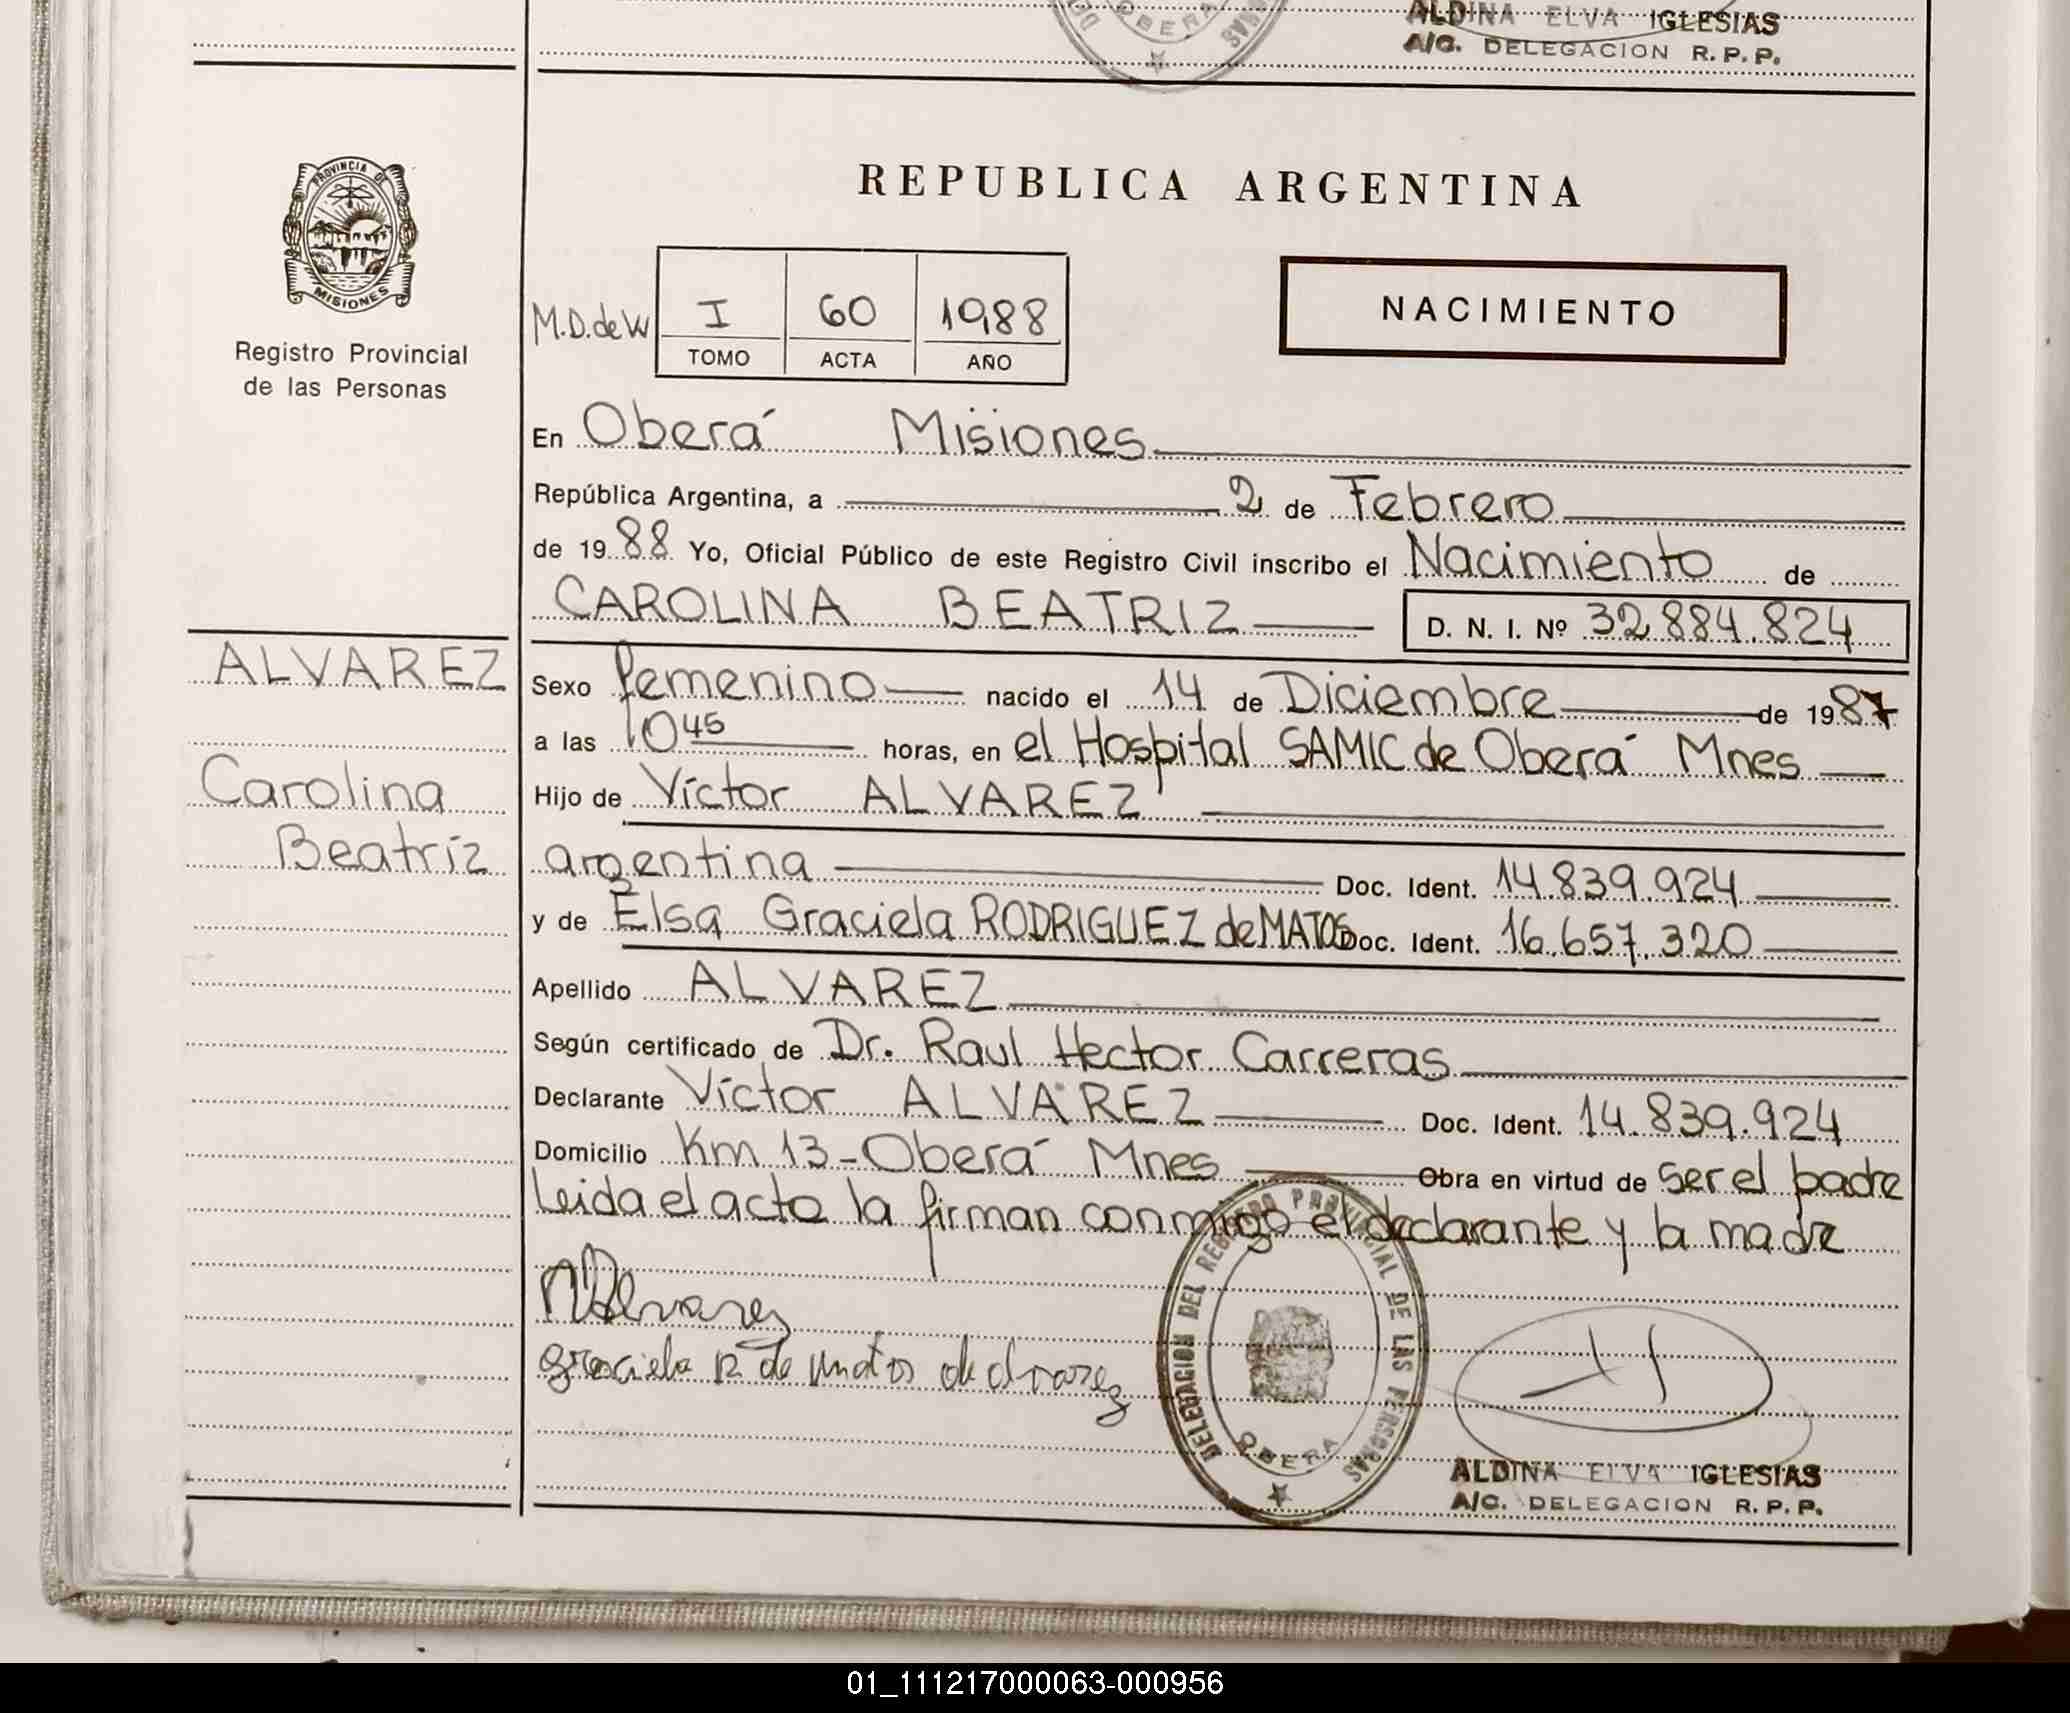 ALDINA ELVA IGLESIAS
A/C. DELEGACION R. P. P.
OBERA
PROVINCIA DE
MISIONES
Registro Provincial
de las Personas
REPUBLICA ARGENTINA
M.D. de W
I 60 1988
TOMO ACTA AÑO
NACIMIENTO
En Oberá Misiones
República Argentina, a 2 de Febrero
de 1988 Yo, Oficial Público de este Registro Civil inscribo el Nacimiento de
CAROLINA BEATRIZ D. N. I. Nº 32.884.824
ALVAREZ
Carolina
Beatriz
Sexo femenino nacido el 14 de Diciembre de 1987
a las 10 45 horas, en el Hospital SAMIC de Oberá Mnes
Hijo de Víctor ALVAREZ
argentina Doc. Ident. 14.839.924
y de Elsa Graciela RODRIGUEZ de MATOS Doc. Ident. 16.657.320
Apellido ALVAREZ
Según certificado de Dr. Raul Hector Carreras
Declarante Víctor ALVAREZ Doc. Ident. 14.839.924
Domicilio Km 13 - Oberá Mnes Obra en virtud de ser el padre
Leida el acta la firman conmigo el declarante y la madre
Alvarez
graciela R de matos de alvarez
DELEGACION DEL REGISTRO PROVINCIAL DE LAS PERSONAS
OBERA
ALDINA ELVA IGLESIAS
A/C. DELEGACION R. P. P.
01_111217000063-000956